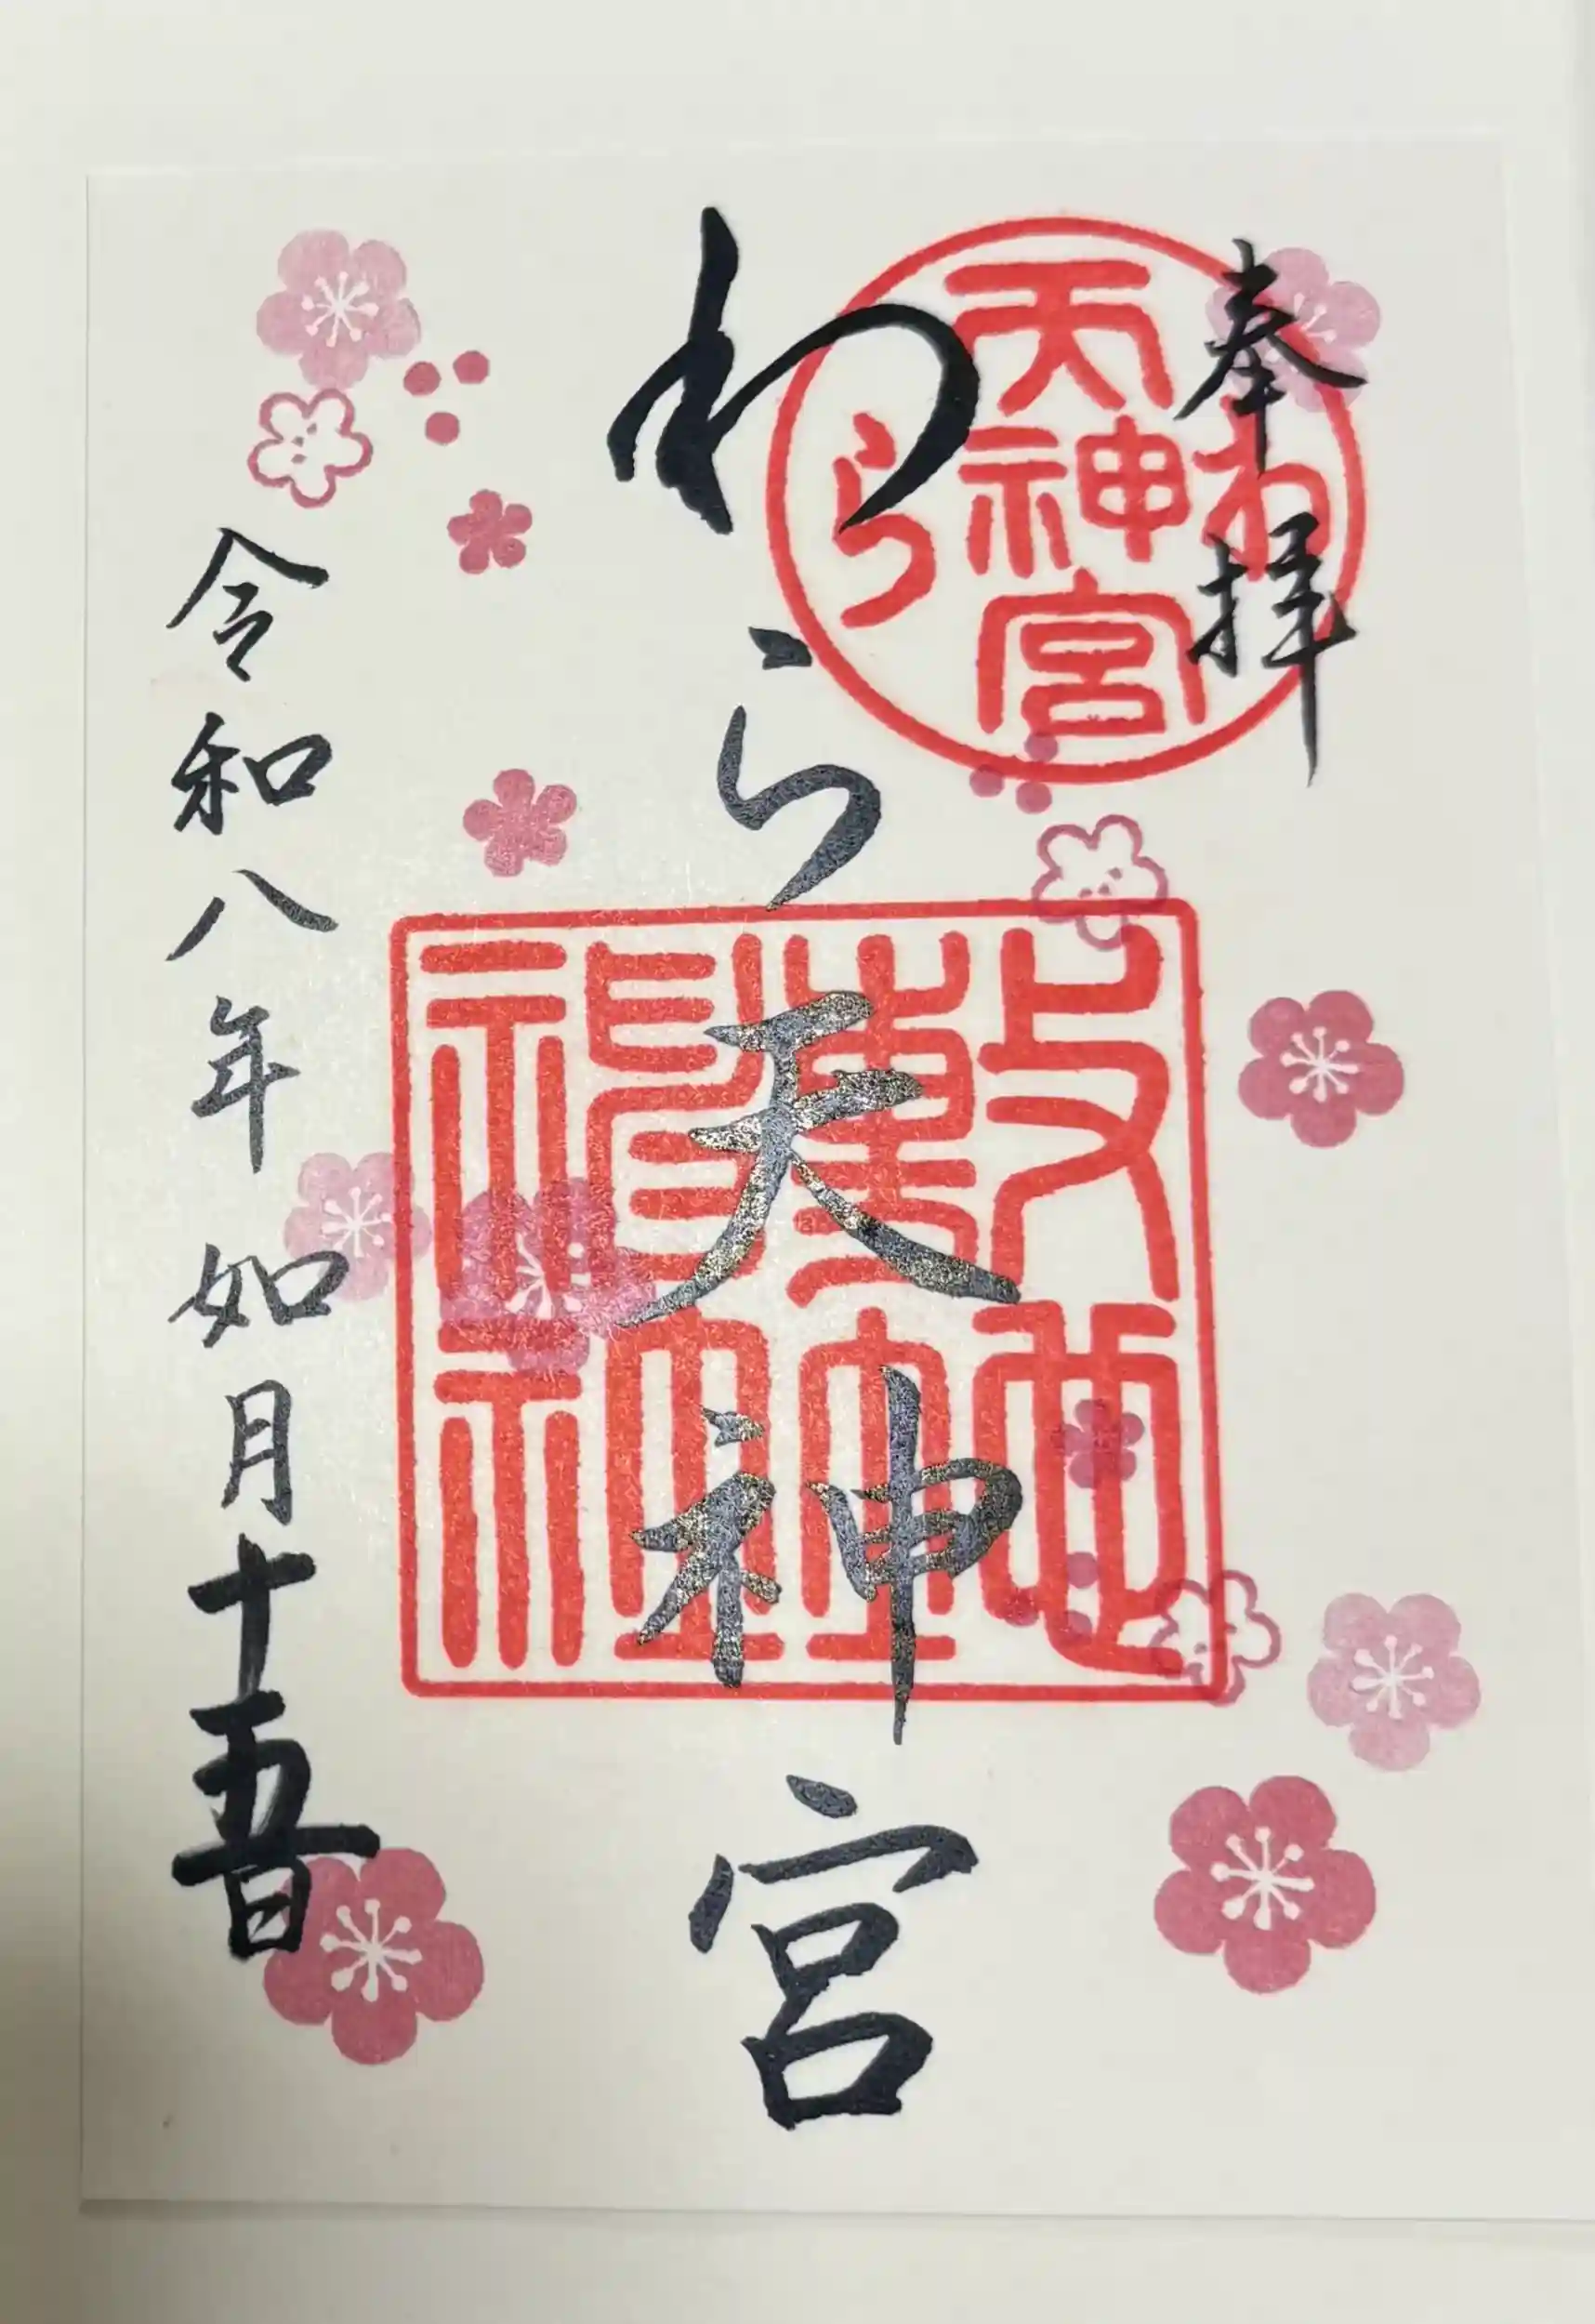 奉拝
わら
天神宮
わら天神宮
敷地
神社
令和八年如月十五日